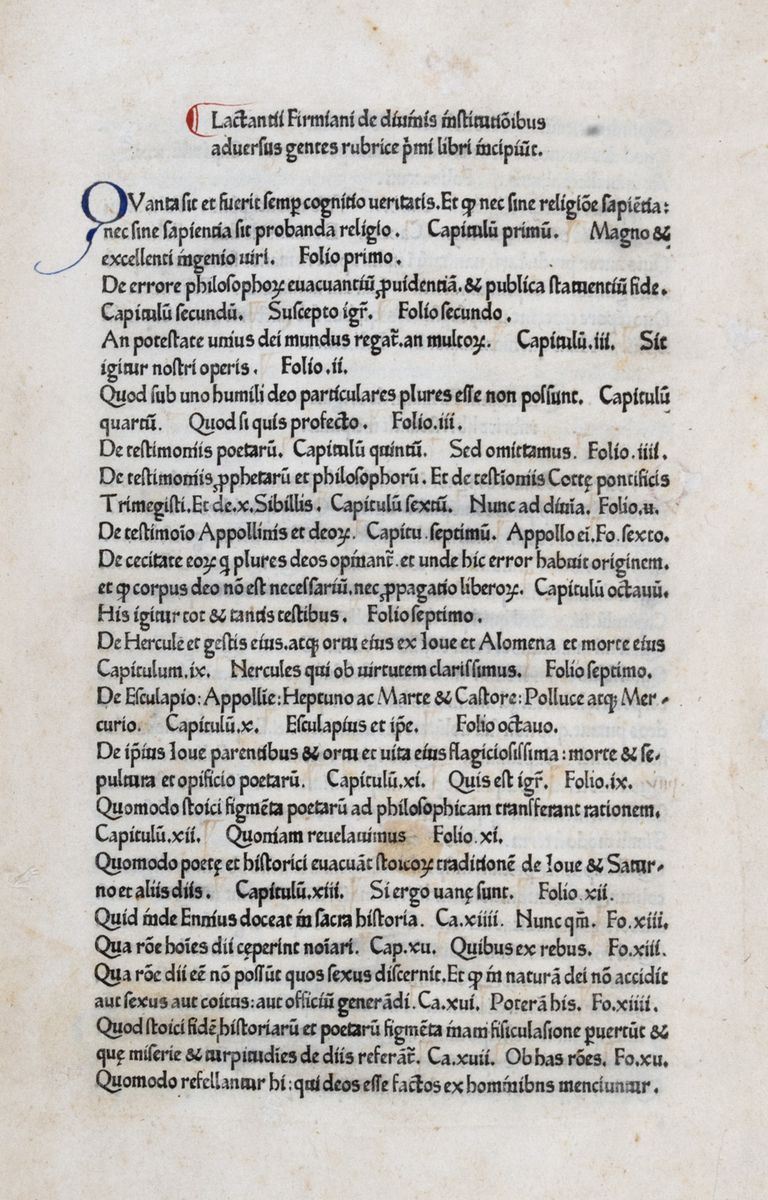 Lactantii Firmiani de diuinis institutiõibus
aduersus gentes rubrice p̃mi libri incipiũt.
QVanta sit et fuerit semꝑ cognitio ueritatis. Et ꝙ nec sine religiõe sapiẽtia:
nec sine sapientia sit probanda religio. Capitulũ primũ. Magno &
excellenti ingenio uiri. Folio primo.
De errore philosophoꝝ euacuantiũ ꝓuidentiã. & publica statuentiũ fide.
Capitulũ secundũ. Suscepto igr̃. Folio secundo.
An potestate unius dei mundus regat̃. an multoꝝ. Capitulũ. iii. Sit
igitur nostri operis. Folio. ii.
Quod sub uno humili deo particulares plures esse non possunt. Capitulũ
quartũ. Quod si quis profecto. Folio. iii.
De testimoniis poetarũ. Capitulũ quintũ. Sed omittamus. Folio. iiii.
De testimoniis ꝓphetarũ et philosophorũ. Et de testĩoniis Cottę pontificis
Trimegisti. Et de. x. Sibillis. Capitulũ sextũ. Nunc ad diuĩa. Folio. u.
De testimoĩo Appollinis et deoꝝ. Capitu. septimũ. Appollo ei. Fo. sexto.
De cecitate eoꝝ q̃ plures deos opinant̃. et unde hic error habuit originem.
et ꝙ corpus deo nõ est necessariũ. nec ꝓpagatio liberoꝝ. Capitulũ octauũ.
His igitur tot & tantis testibus. Folio septimo.
De Hercule et gestis eius. atqꝫ ortu eius ex Ioue et Alomena et morte eius
Capitulum. ix. Hercules qui ob uirtutem clarissimus. Folio septimo.
De Esculapio: Appollĩe: Heptuno ac Marte & Castore: Polluce atqꝫ Mer-
curio. Capitulũ. x. Esculapius et ip̃e. Folio octauo.
De ip̃ius Ioue parentibus & ortu et uita eius flagiciosissima: morte & se-
pultura et opificio poetarũ. Capitulũ. xi. Quis est igr̃. Folio. ix.
Quomodo stoici figmẽta poetarũ ad philosophicam transferant rationem.
Capitulũ. xii. Quoniam reuelauimus Folio. xi.
Quomodo poetę et historici euacuãt stoicoꝝ traditionẽ de Ioue & Satur-
no et aliis diis. Capitulũ. xiii. Si ergo uanę sunt. Folio. xii.
Quid inde Ennius doceat in sacra historia. Ca. xiiii. Nunc qm̃. Fo. xiii.
Qua rõe hoĩes dii cęperint noĩari. Cap. xu. Quibus ex rebus. Fo. xiii.
Qua rõe dii eẽ nõ possũt quos sexus discernit. Et ꝙ in naturã dei nõ accidit
aut sexus aut coitus: aut officiũ generãdi. Ca. xui. Poterã his. Fo. xiiii.
Quod stoici fidẽ historiarũ et poetarũ figmẽta inani fisiculasione ꝑuertũt &
quę miserie & turpitudĩes de diis referãt̃. Ca. xuii. Ob has rões. Fo. xu.
Quomodo refellantur hi: qui deos esse factos ex hominibns menciuntur.